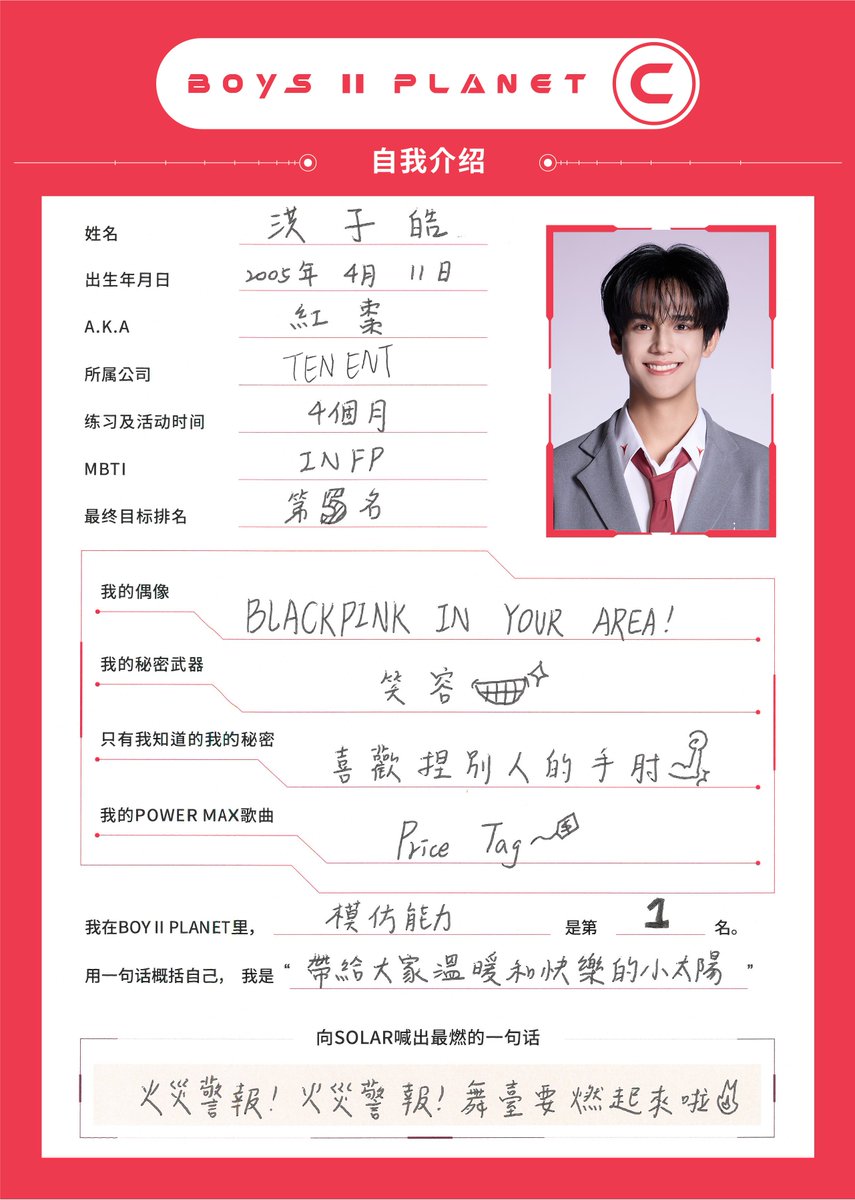 BOYS II PLANET C
自我介绍
姓名 洪子皓
出生年月日 2005年 4月 11日
A.K.A 紅棗
所属公司 TEN ENT
练习及活动时间 4個月
MBTI INFP
最终目标排名 第5名
我的偶像
BLACKPINK IN YOUR AREA!
我的秘密武器
笑容
只有我知道的我的秘密
喜歡捏別人的手肘
我的POWER MAX歌曲
Price Tag
我在BOY II PLANET里， 模仿能力 是第 1 名。
用一句话概括自己， 我是 “ 帶給大家溫暖和快樂的小太陽 ”
向SOLAR喊出最燃的一句话
火災警報! 火災警報! 舞臺要燃起來啦